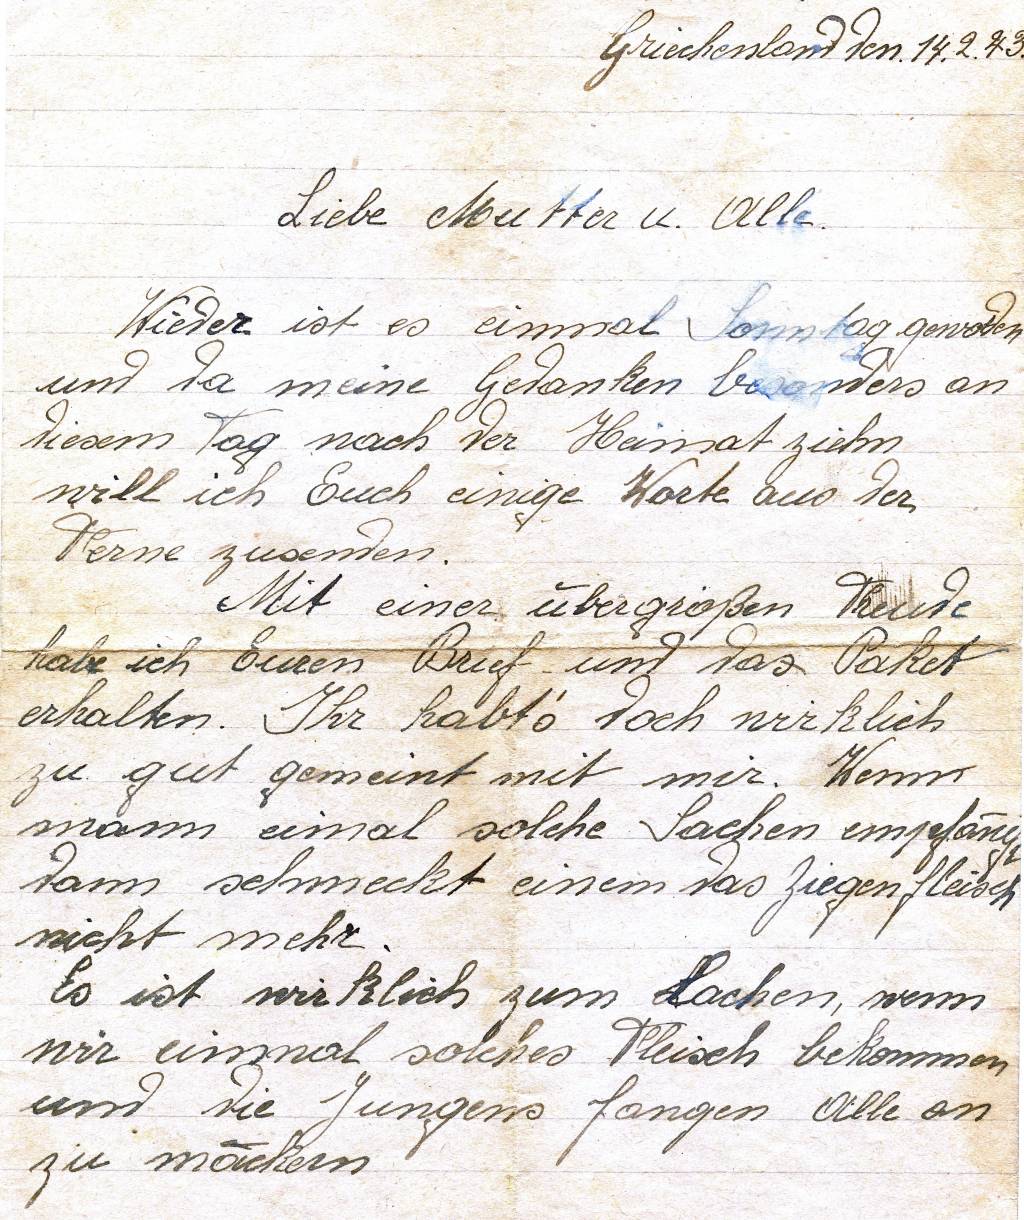 Griechenland den. 14.2.43.
Liebe Mutter u. Alle.
Wieder ist es einmal Sonntag geworden
und da meine Gedanken besonders an
diesem Tag nach der Heimat ziehn
will ich Euch einige Worte aus der
Ferne zusenden.
Mit einer übergroßen Freude
habe ich Euren Brief und das Paket
erhalten. Ihr habt's doch wirklich
zu gut gemeint mit mir. Wenn
mann eimal solche Sachen empfäng
dann schmeckt einem das Ziegenfleisch
nicht mehr.
Es ist wirklich zum Lachen, wenn
wir einmal solches Fleisch bekommen
und die Jungens fangen Alle an
zu mäckern